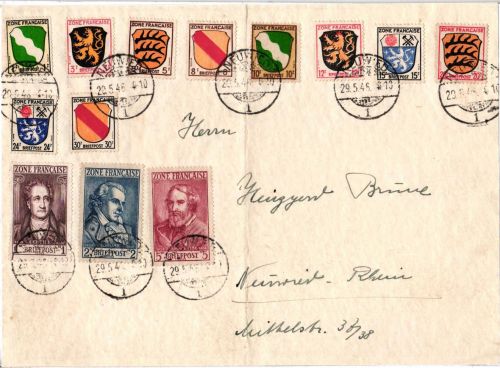 ZONE FRANÇAISE ZONE FRANÇAISE ZONE FRANÇAISE ZONE FRANÇAISE ZONE FRANÇAISE ZONE FRANÇAISE ZONE FRANÇAISE ZONE FRANÇAISE
3 BRIEFPOST 5 BRIEFPOST 8 BRIEFPOST 10 BRIEFPOST 10 12 15 BRIEFPOST 15 20
29.5.46 29.5.46 29.5.46 29.5.46
1 1 1 1
ZONE FRANÇAISE ZONE FRANÇAISE
24 BRIEFPOST 24 30 BRIEFPOST 30
Herrn
ZONE FRANÇAISE ZONE FRANÇAISE ZONE FRANÇAISE
BRIEFPOST 1 2 BRIEFPOST 2 5 BRIEFPOST 5
29.5.46 29.5.46 29.5.46
1 1 1
Brüne
Neuwied-Rhein
Mittelstr. 36/38